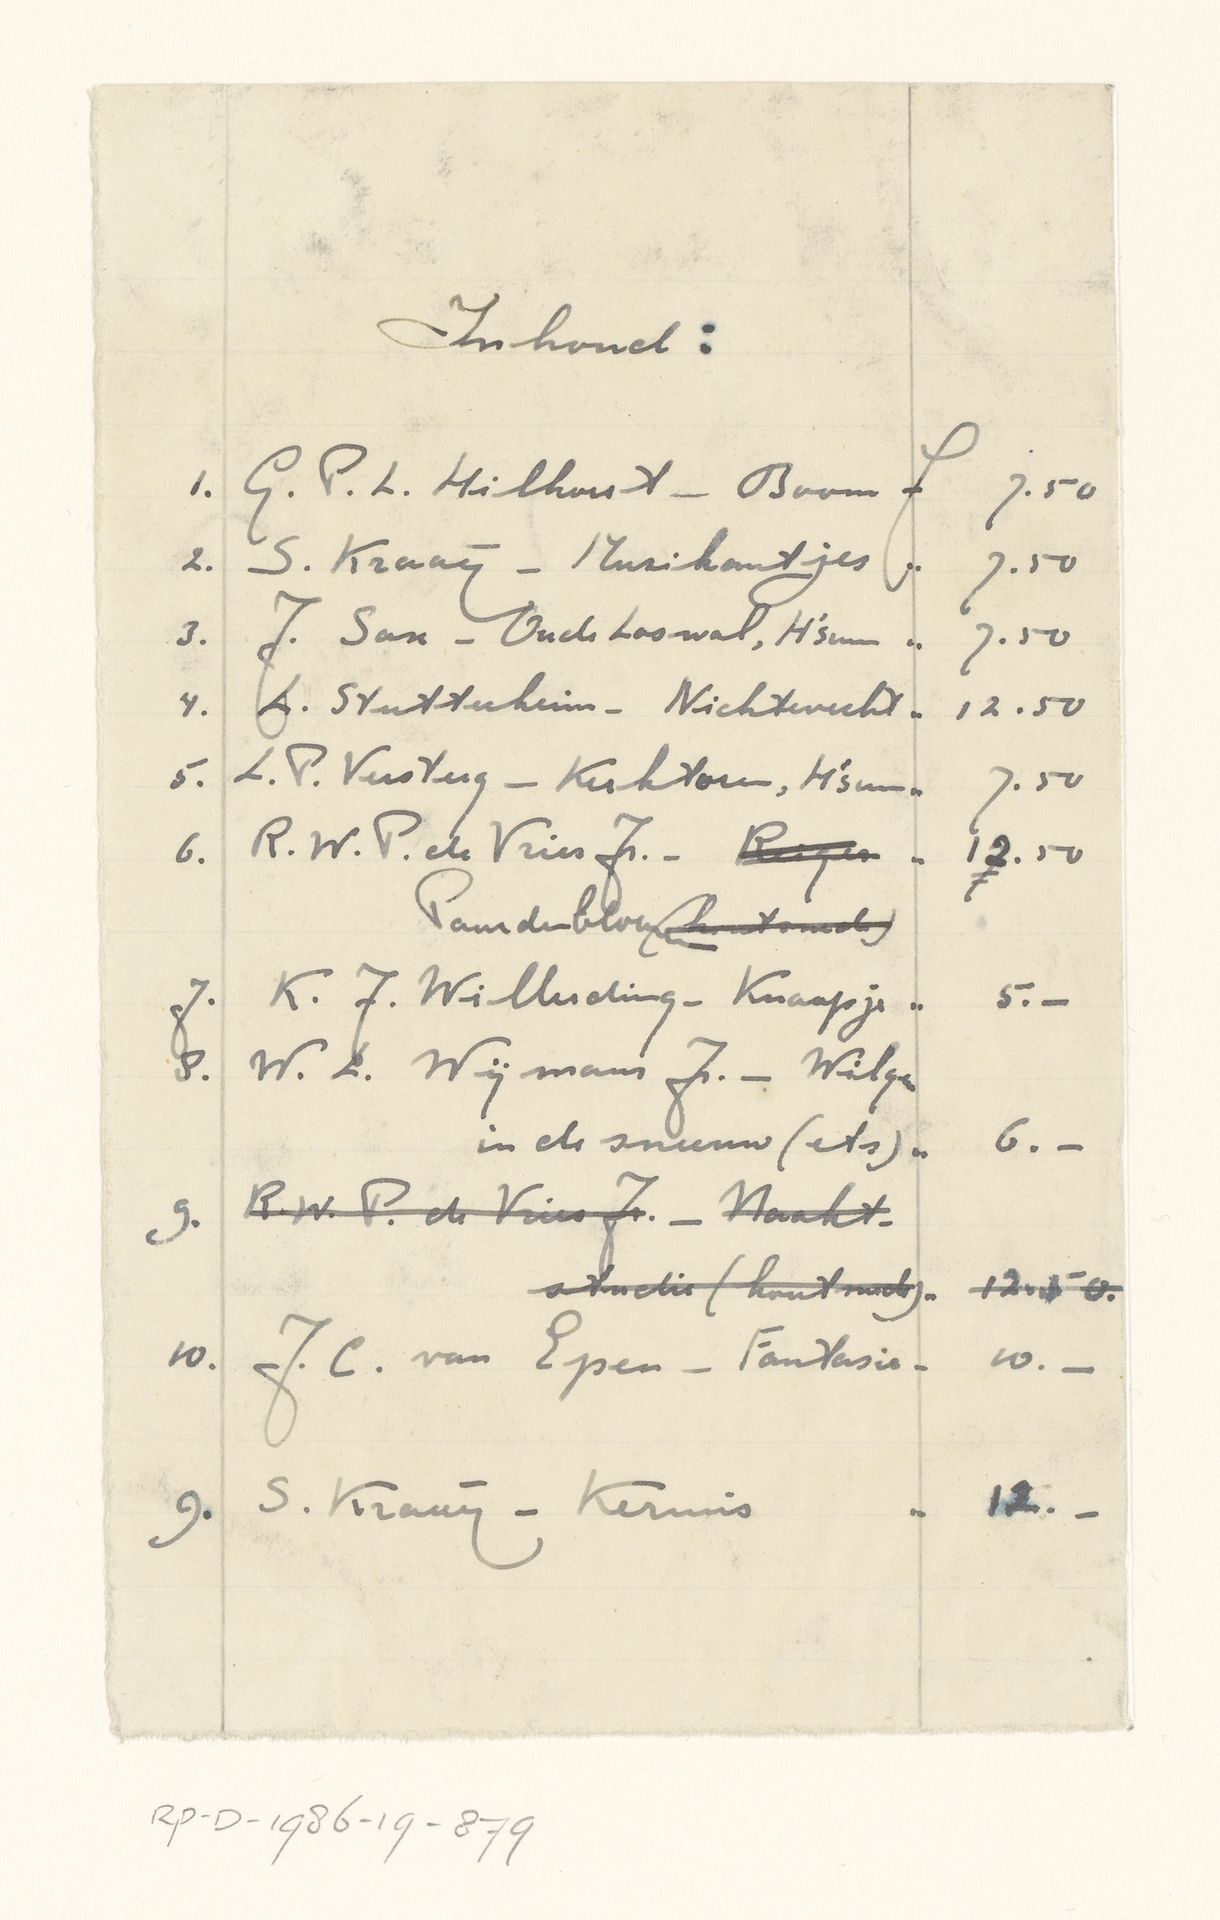 Inhoud :
1. G. P. L. Hilhorst – Boom f 7.50
2. S. Kraaÿ – Musikantjes " 7.50
3. J. Sax – Oude Loswal, H'sum " 7.50
4. L. Stutterheim – Nichtevecht " 12.50
5. L. P. Versteeg – Kerktoren, H'sum " 7.50
6. R. W. P. de Vries Jr. – Reiger " 12.50
Paardebloem (houtsnede)
7. K. J. Willerding – Knaapje " 5.–
8. W. L. Wijmans Jr. – Wilgen
in de sneeuw (ets) " 6.–
9. R. W. P. de Vries Jr. – Naakt-
studie (houtsnede) " 12.50.
10. J. C. van Epen – Fantasie – 10.–
9. S. Kraaÿ – Kermis " 12.–
RP-D-1986-19-879